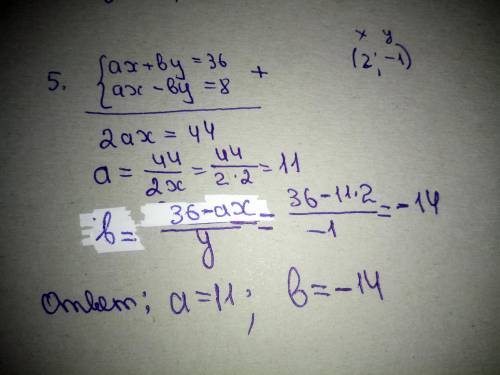 x y
5. {ax+by=36 + (2;-1)
ax-by=8
2ax=44
a=44/2x=44/2·2=11
b=36-ax/y=36-11·2/-1=-14
ответ; a=11; b=-14